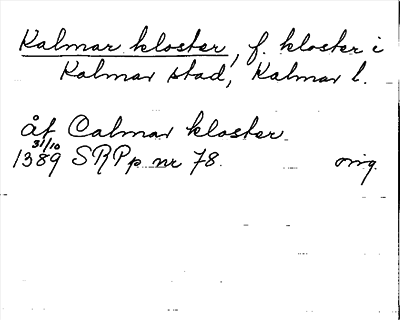 Kalmar kloster, f. kloster i
Kalmar stad, Kalmar l.
åf Calmar kloster
31/10
1389 SRPp nr 78. orig.